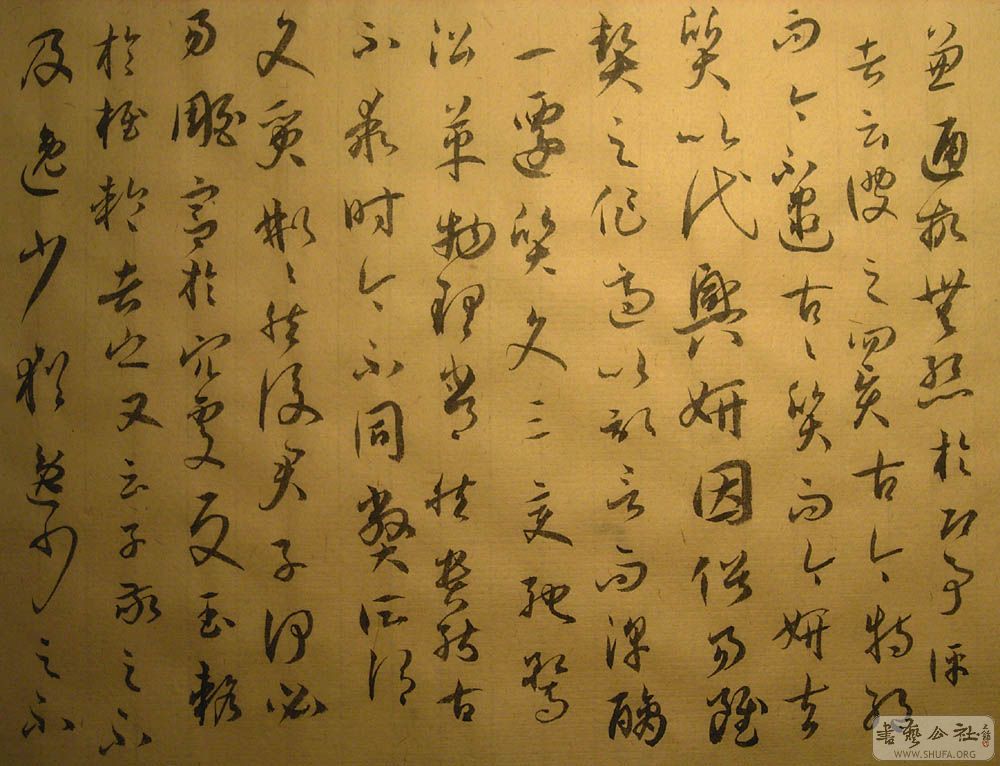 兼通故無慚於即事評
者云彼之四賢古今特絕
而今不逮古〻質而今妍夫
質以代興妍因俗易雖
契之作適以記言而淳醨
一遷質文三變馳騖
沿革物理常然貴能古
不乖時今不同弊所謂
文質彬〻然後君子何必
易雕宮於穴處反玉輅
於椎輪者乎又云子敬之不
及逸少猶逸少之不
書藝公社
WWW.SHUFA.ORG